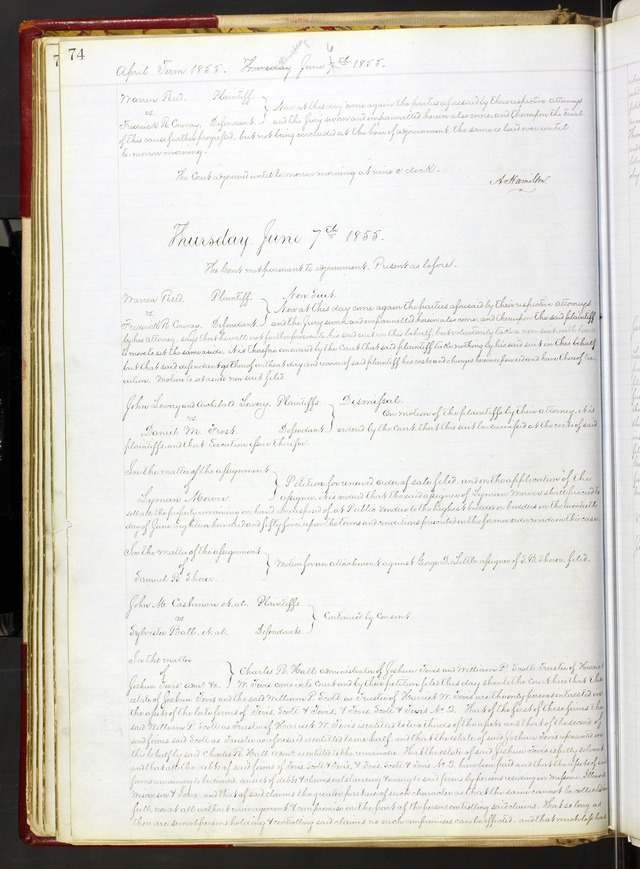 74
April Term 1855. Thursday June 6th 1855.
Warren Reed. Plaintiff
vs.
Now at this day come again the parties aforesaid by their respective attorneys
Fredrick R. Conway. Defendant. and the Jury sworn and empannelled herein also come, and thereupon the trial
of this cause further progressed, but not being concluded at the hour of adjournment, the same is laid over until
to-morrow morning.
The Court adjourned until to-morrow morning at nine o'clock.
A. Hamilton
Thursday June 7th 1855.
The Court met pursuant to adjournment. Present as before.
Warren Reed. Plaintiff. Non Suit.
vs.
Now at this day come again the parties aforesaid by their respective attorneys
Fredrick R. Conway. Defendant. and the Jury sworn and empannelled herein also come, and thereupon the said plaintiff
by his attorney, says that he will not further prosecute his said suit in this behalf, but voluntarily takes a non suit with leave
to move to set the same aside. It is therefore considered by the Court that said plaintiff take nothing by his said suit in this behalf
but that said defendant go thereof without day and recover of said plaintiff his costs and charges herein expended and have thereof exe-
cution. Motion to set aside non suit filed.
John Lowry and Archibald Lowry. Plaintiffs. Dismissal.
vs.
On motion of the plaintiffs by their attorney, it is
Daniel M. Frost. Defendant. ordered by the Court that this suit be dismissed at the costs of said
plaintiffs, and that Execution issue therefor.
In the matter of the assignment
of
Petition for renewed order of sale filed, and on the application of the
Lyman Mower. assignee, it is ordered that the said assignee of Lyman Mower shall proceed to
sell at the property remaining on hand undisposed of at Public Vendue to the highest bidder or bidders on the twentieth
day of June eighteen hundred and fifty five, upon the terms and conditions prescribed in the former order made in this case.
In the matter of the assignment
of
Motion for an attachment against George D. Little assignee of S. B. filed.
Samuel B.
John M. Cashman et. al. Plaintiffs.
vs.
Continued by Consent.
Sylvester Ball, et. al. Defendants.
In the matter
of
Charles R. Hall administrator of Joshua Tevis and William P. Scott Trustee of Harriet
Joshua Tevis' admr. &c. W. Tevis come into Court and by their petition filed this day show to the Court here that the
estate of Joshua Tevis and the said William P. Scott as Trustee of Harriet W. Tevis are the only persons interested in
the assets of the late firms of Tevis, Scott & Tevis, & Tevis Scott & Tevis No 2. That of the first of these firms the
said William P. Scott as Trustee of Harriet W. Tevis is entitled to two thirds of the assets and that of the second of
said firms said Scott as Trustee as aforesaid is entitled to one half, and that the estate of said Joshua Tevis
by said Charles R. Hall admr. is entitled to the remainder. That the estate of said Joshua Tevis is fully solvent
and that all the debts of said firms of Tevis Scott & Tevis, & Tevis Scott & Tevis No 2, have been paid and that the assets of said
firms remaining to be divided, consist of debts & claims outstanding & owing to said firms by persons residing in Missouri, Illinois
Wisconsin & Iowa, and that of said claims the greater part are of such character as that the same cannot be collected in
full, or at all without management & compromise on the part of the persons controlling said claims. That so long as
there are several persons holding & controlling said claims no such compromises can be effected, and that much loss has